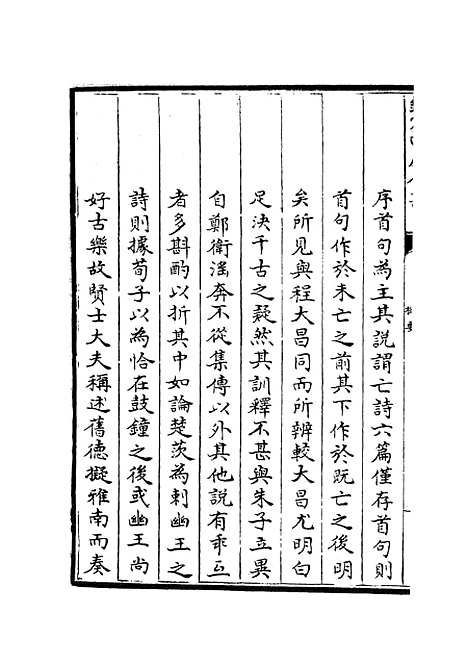 序首句為主其說謂亡詩六篇僅存首句則
首句作於未亡之前其下作於既亡之後明
矣所見與程大昌同而所辨較大昌尤明白
足決千古之疑然其訓釋不甚與朱子立異
自鄭衛淫奔不從集傳以外其他說有乖互
者多斟酌以折其中如論楚茨為刺幽王之
詩則據荀子以為恰在鼓鐘之後或幽王尚
好古樂故賢士大夫稱述舊德擬雅南而奏